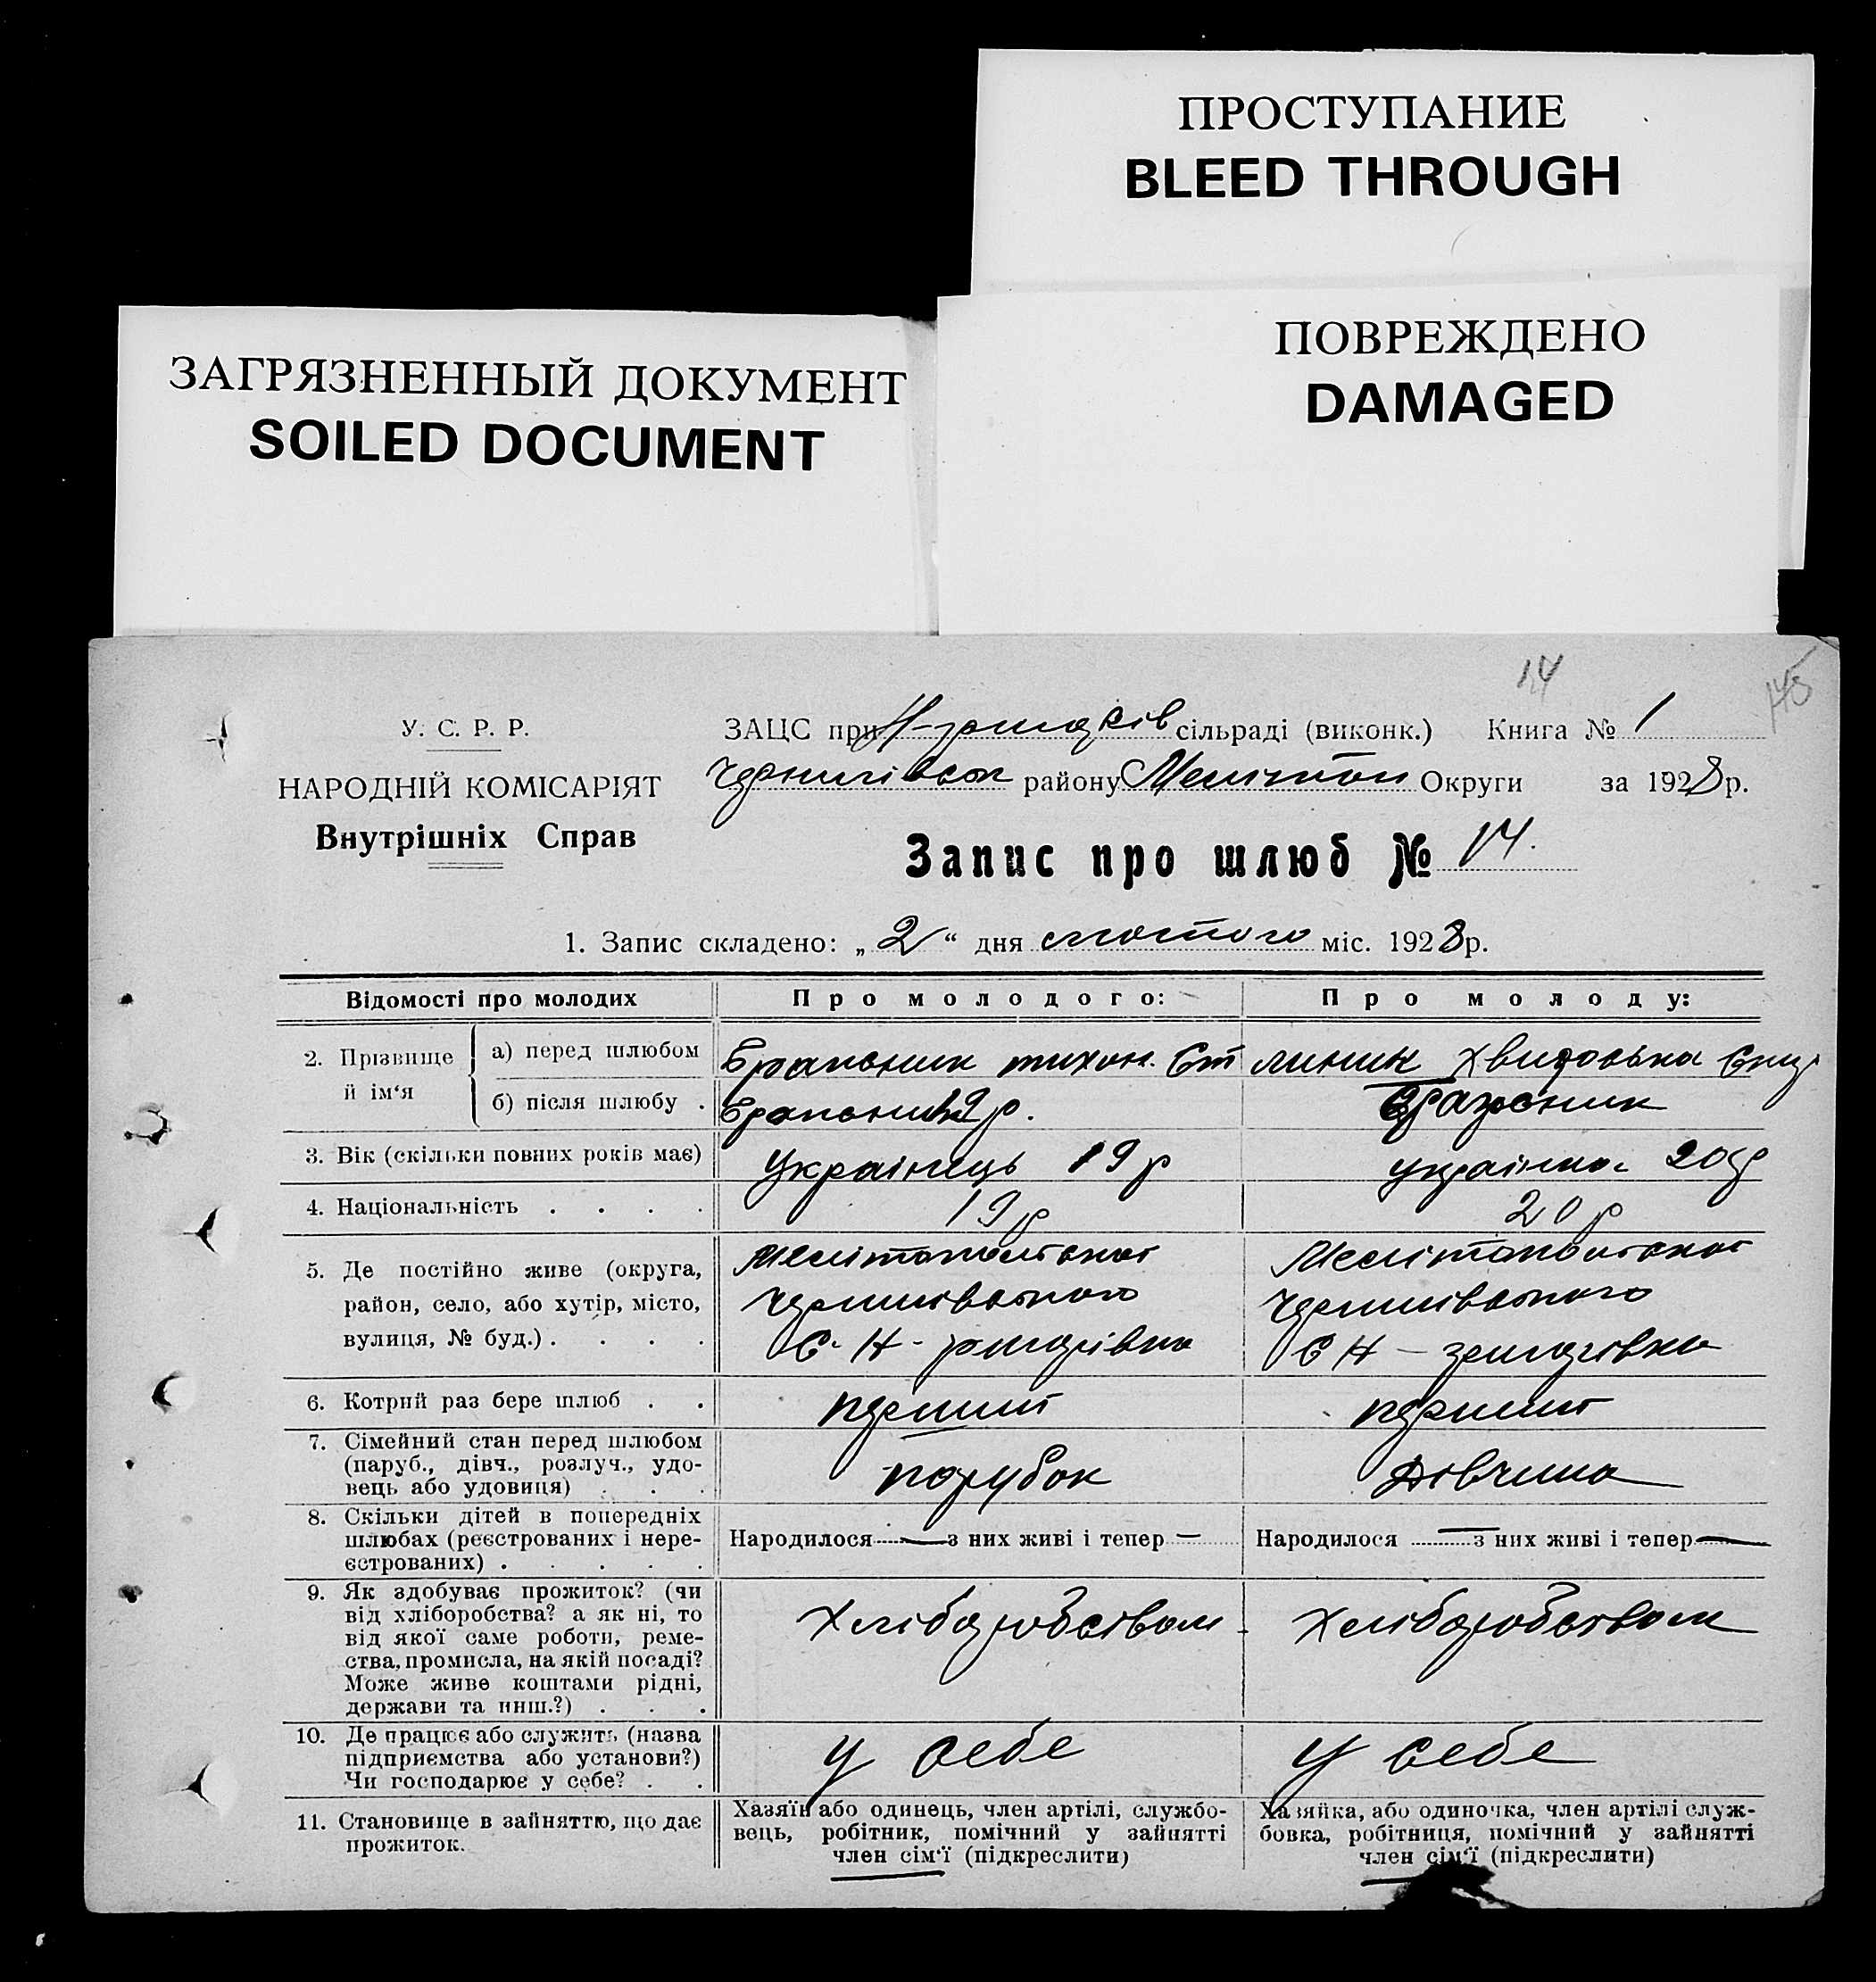 ПРОСТУПАНИЕ
BLEED THROUGH
ПОВРЕЖДЕНО
DAMAGED
ЗАГРЯЗНЕННЫЙ ДОКУМЕНТ
SOILED DOCUMENT
14
145
У. С. Р. Р.
НАРОДНІЙ КОМІСАРІЯТ
Внутрішніх Справ
ЗАЦС при сільраді (виконк.) Книга № 1
району Мелітоп Округи за 1928 р.
Запис про шлюб № 14.
1. Запис складено: „2“ дня лютого міс. 1928 р.
Відомості про молодих
Про молодого:
Про молоду:
2. Прізвище й ім‘я
а) перед шлюбом
тихон
б) після шлюбу .
3. Вік (скільки повних років має)
Українець 19 р
українка 20 р
4. Національність . . . .
19 р
20 р
5. Де постійно живе (округа,
район, село, або хутір, місто,
вулиця, № буд.) . . . .
Мелітопольскої
С. Н-
Мелітопольскої
С Н -
6. Котрий раз бере шлюб . .
перший
перший
7. Сімейний стан перед шлюбом
(паруб., дівч., розлуч., удо-
вець або удовиця) . . .
парубок
Дівчина
8. Скільки дітей в попередніх
шлюбах (реєстрованих і нере-
єстрованих) . . . . .
Народилося — з них живі і тепер —
Народилося — з них живі і тепер —
9. Як здобуває прожиток? (чи
від хліборобства? а як ні, то
від якої саме роботи, реме-
ства, промисла, на якій посаді?
Може живе коштами рідні,
держави та инш.?) . . .
Хліборобством
Хліборобством
10. Де працює або служить (назва
підприємства або установи?)
Чи господарює у себе? . .
у себе
у себе
11. Становище в зайняттю, що дає
прожиток.
Хазяїн або одинець, член артілі, службо-
вець, робітник, помічний у зайнятті
член сім‘ї (підкреслити)
Хазяйка, або одиночка, член артілі служ-
бовка, робітниця, помічний у зайнятті
член сім‘ї (підкреслити)